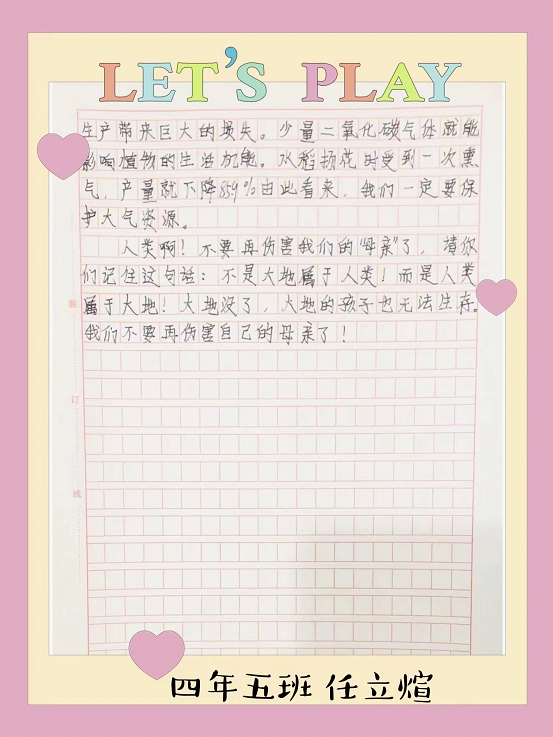 LET'S PLAY
生产带来巨大的损失。少量二氧化碳气体就能
影响植物的生活机能。水稻扬花时受到一次熏
气，产量就下降859%由此看来，我们一定要保
护大气资源。
人类啊！不要再伤害我们的“母亲”了，请你
们记住这句话：不是大地属于人类！而是人类
属于大地！大地没了，大地的孩子也无法生存。
我们不要再伤害自己的母亲了！
装
订
线
四年五班 任立煊